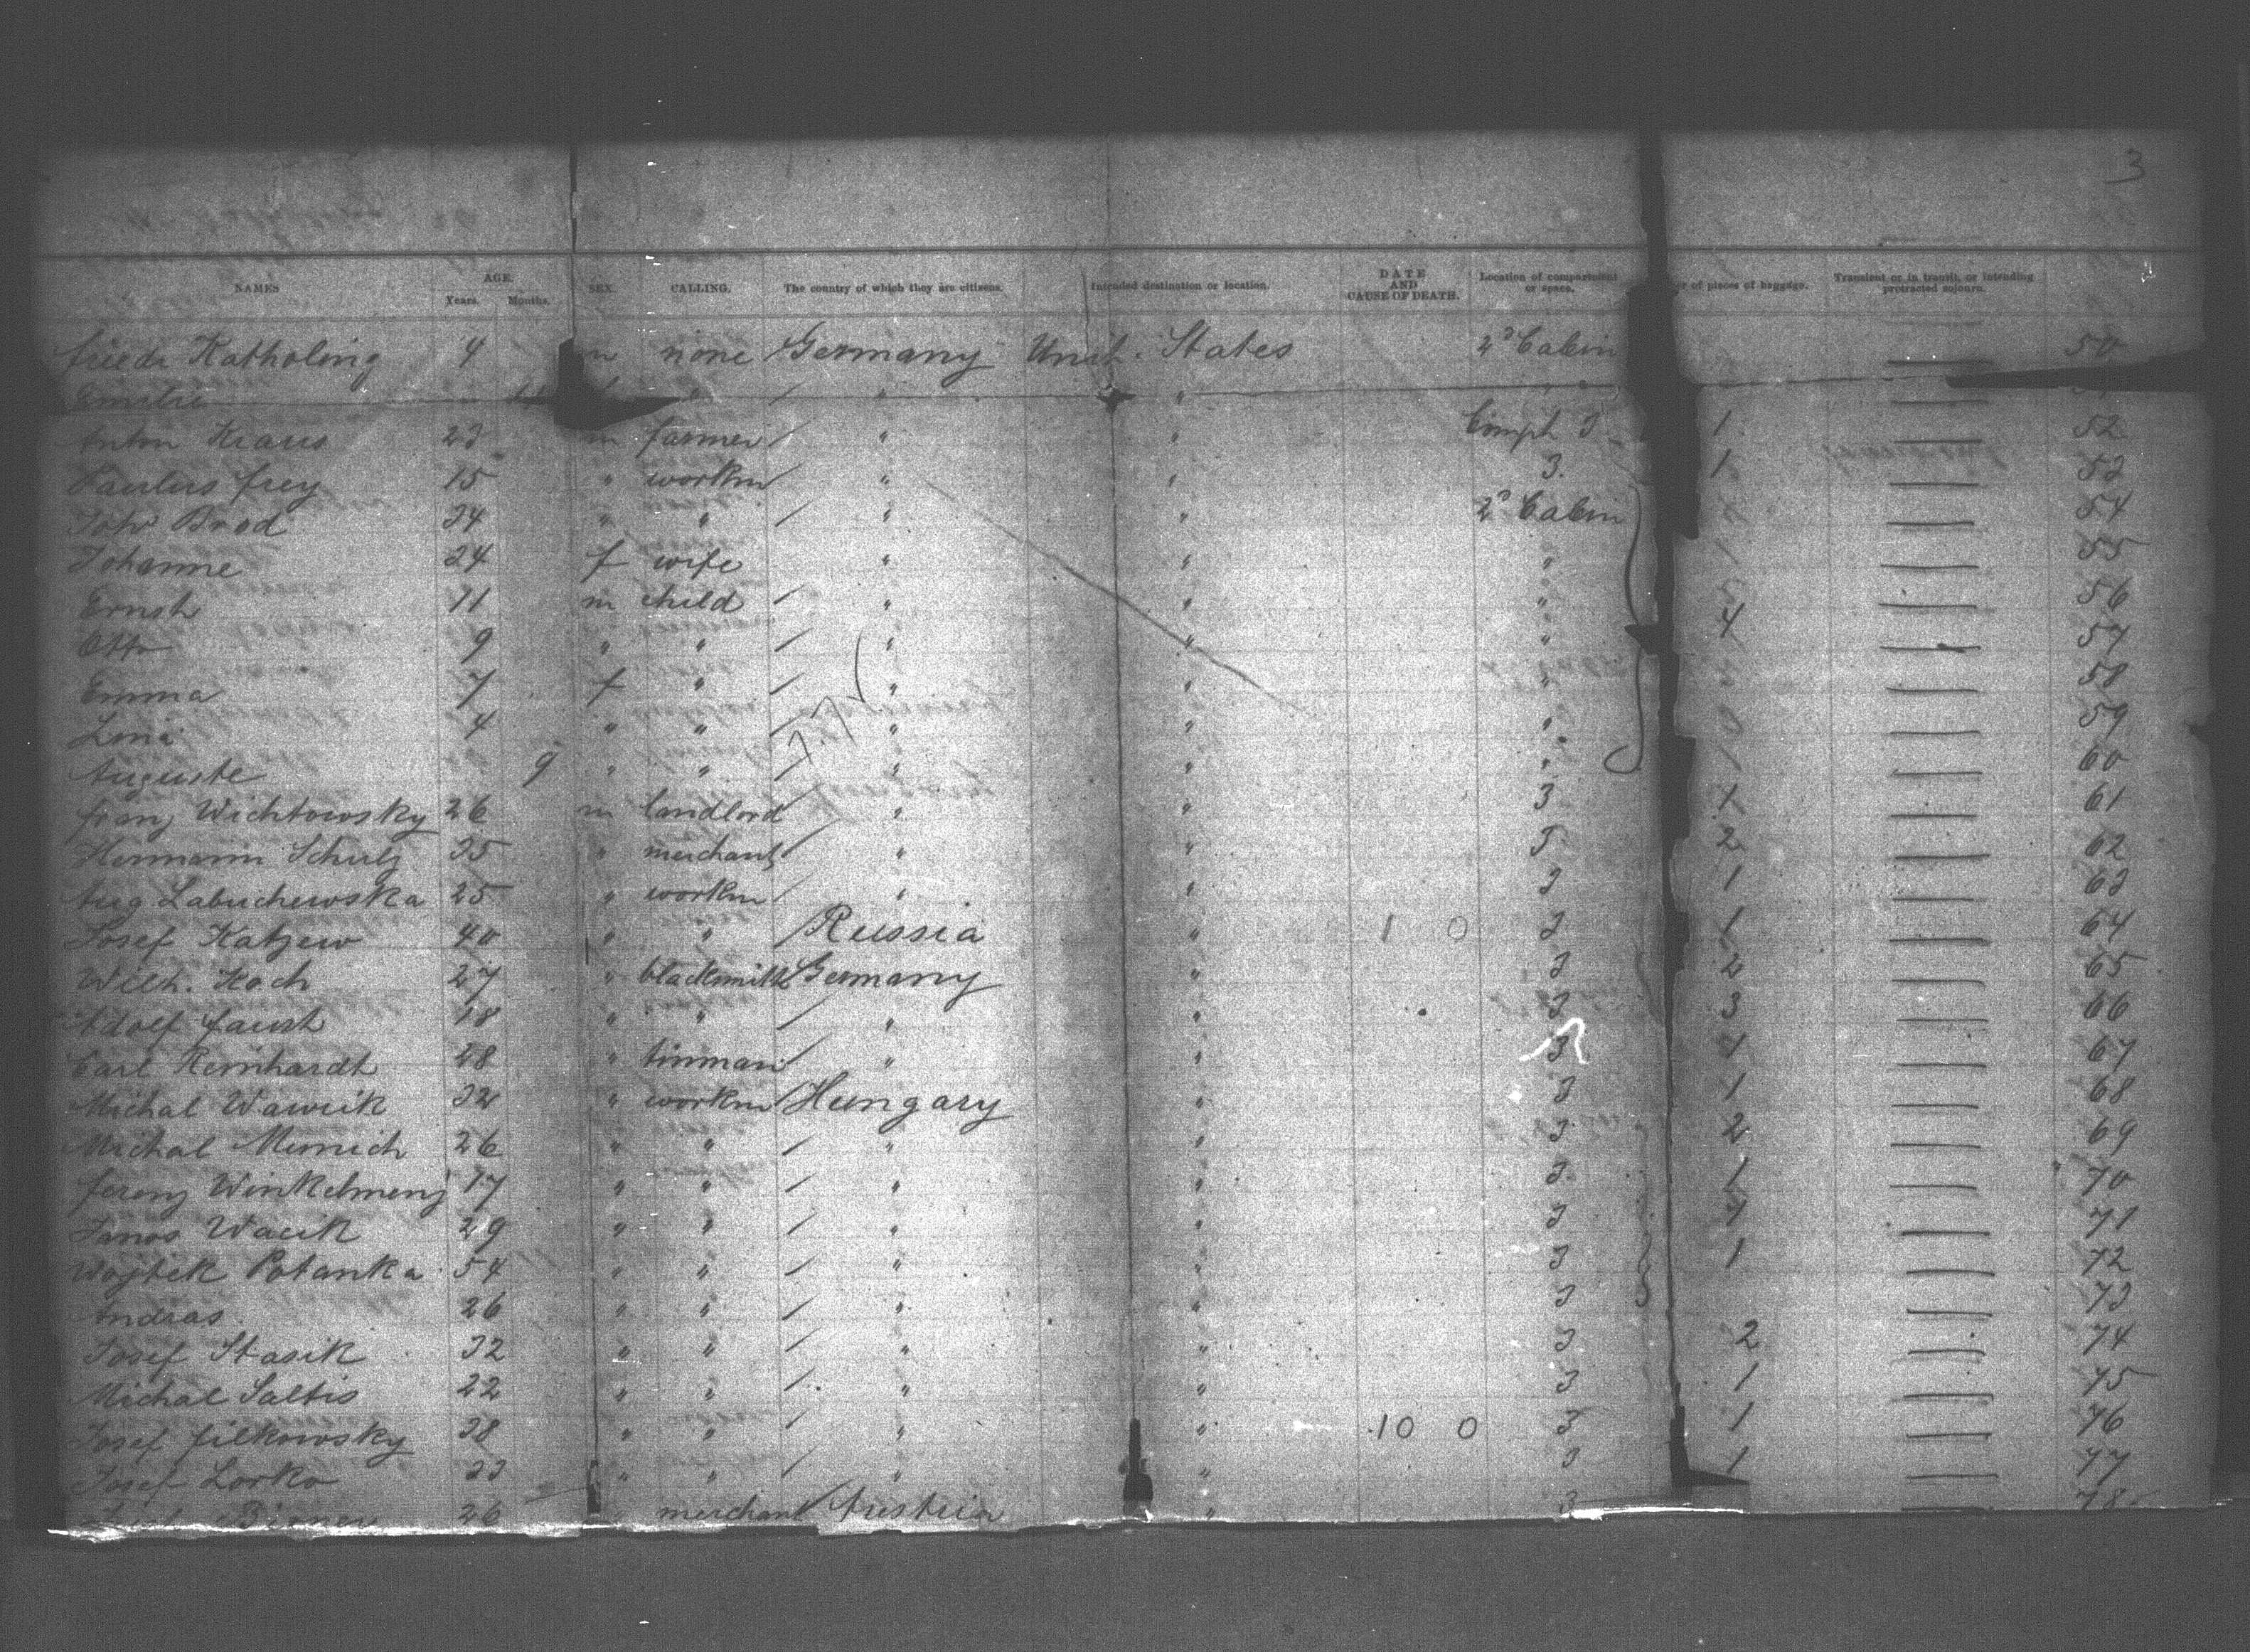 3
NAMES AGE. Years. Months. SEX. CALLING. The country of which they are citizens. Intended destination or location. DATE AND CAUSE OF DEATH. Location of compartment or space. of pieces of baggage. Transient or in transit, or intending protracted sojourn.
Friedr Katholing 4 m none Germany Unit. States 2d Cabin — 50
Emilie " " " " —
Anton Kraus 23 m farmer " " Compt 3 1 — 52
Paulus Frey 15 " workm " " 3. 1 — 53
Joh. Brod 34 " " " " 2d Cabin — 54
Johanne 34 f wife " " " — 55
Ernst 11 m child " " " 4 — 56
Otto 9 " " " " " — 57
Emma 7 f " " " " — 58
Lina 4 " " " " " — 59
Auguste 9 " " " " " — 60
Franz Wichtowsky 26 m landlord " " 3 1 — 61
Hermann Schulz 35 " merchant " " 3 2 — 62
Aug Labuchewska 25 " workm " " 3 1 — 63
Josef Katzew 40 " " Russia " 1 0 3 1 — 64
Wilh. Koch 27 " blacksmith Germany " 3 2 — 65
Adolf Faust 18 " " " " 3 3 — 66
Carl Reinhardt 28 " tinman " " 3 1 — 67
Michal Wawrik 32 " workm Hungary " 3 1 — 68
Michal 26 " " " " 3 2 — 69
Ferenz Winkelmenz 17 " " " " 3. 1 — 70
Janos Wacik 29 " " " " 3 1 — 71
Wojtek Potanka 54 " " " " 3 1 — 72
Andras 26 " " " " 3 — 73
Josef Stasik 32 " " " " 3 2 — 74
Michal Saltis 22 " " " " 3 1 — 75
Josef Filkowsky 38 " " " " 10 0 3 1 — 76
Josef Lorko 33 " " " " 3 1 — 77
26 merchant Austria " 3 — 78